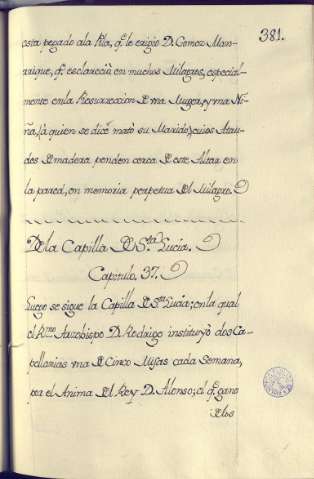 381.
esta pegado ala Rla, q.e le erigio D. Gomez Man-
rique, q.e esclareciò en muchos Milagros, especial-
mente enla Resurreccion de vna Muger, y vna Ni-
ña, (à quien se dice matò su Marido) cuios Atau-
des de madera penden cerca de este Altar en
la pared, en memoria perpetua del Milagro.
De la Capilla de S.ta Lucia.
Capitulo. 37.
Luego se sigue la Capilla de S.ta Lucia: en la qual
el R.mo Arzobispo D. Rodrigo instituyò dos Ca-
pellanias vna de Cinco Misas cada Semana,
por el Anima del Rey D. Alonso; el q.e gano
de los